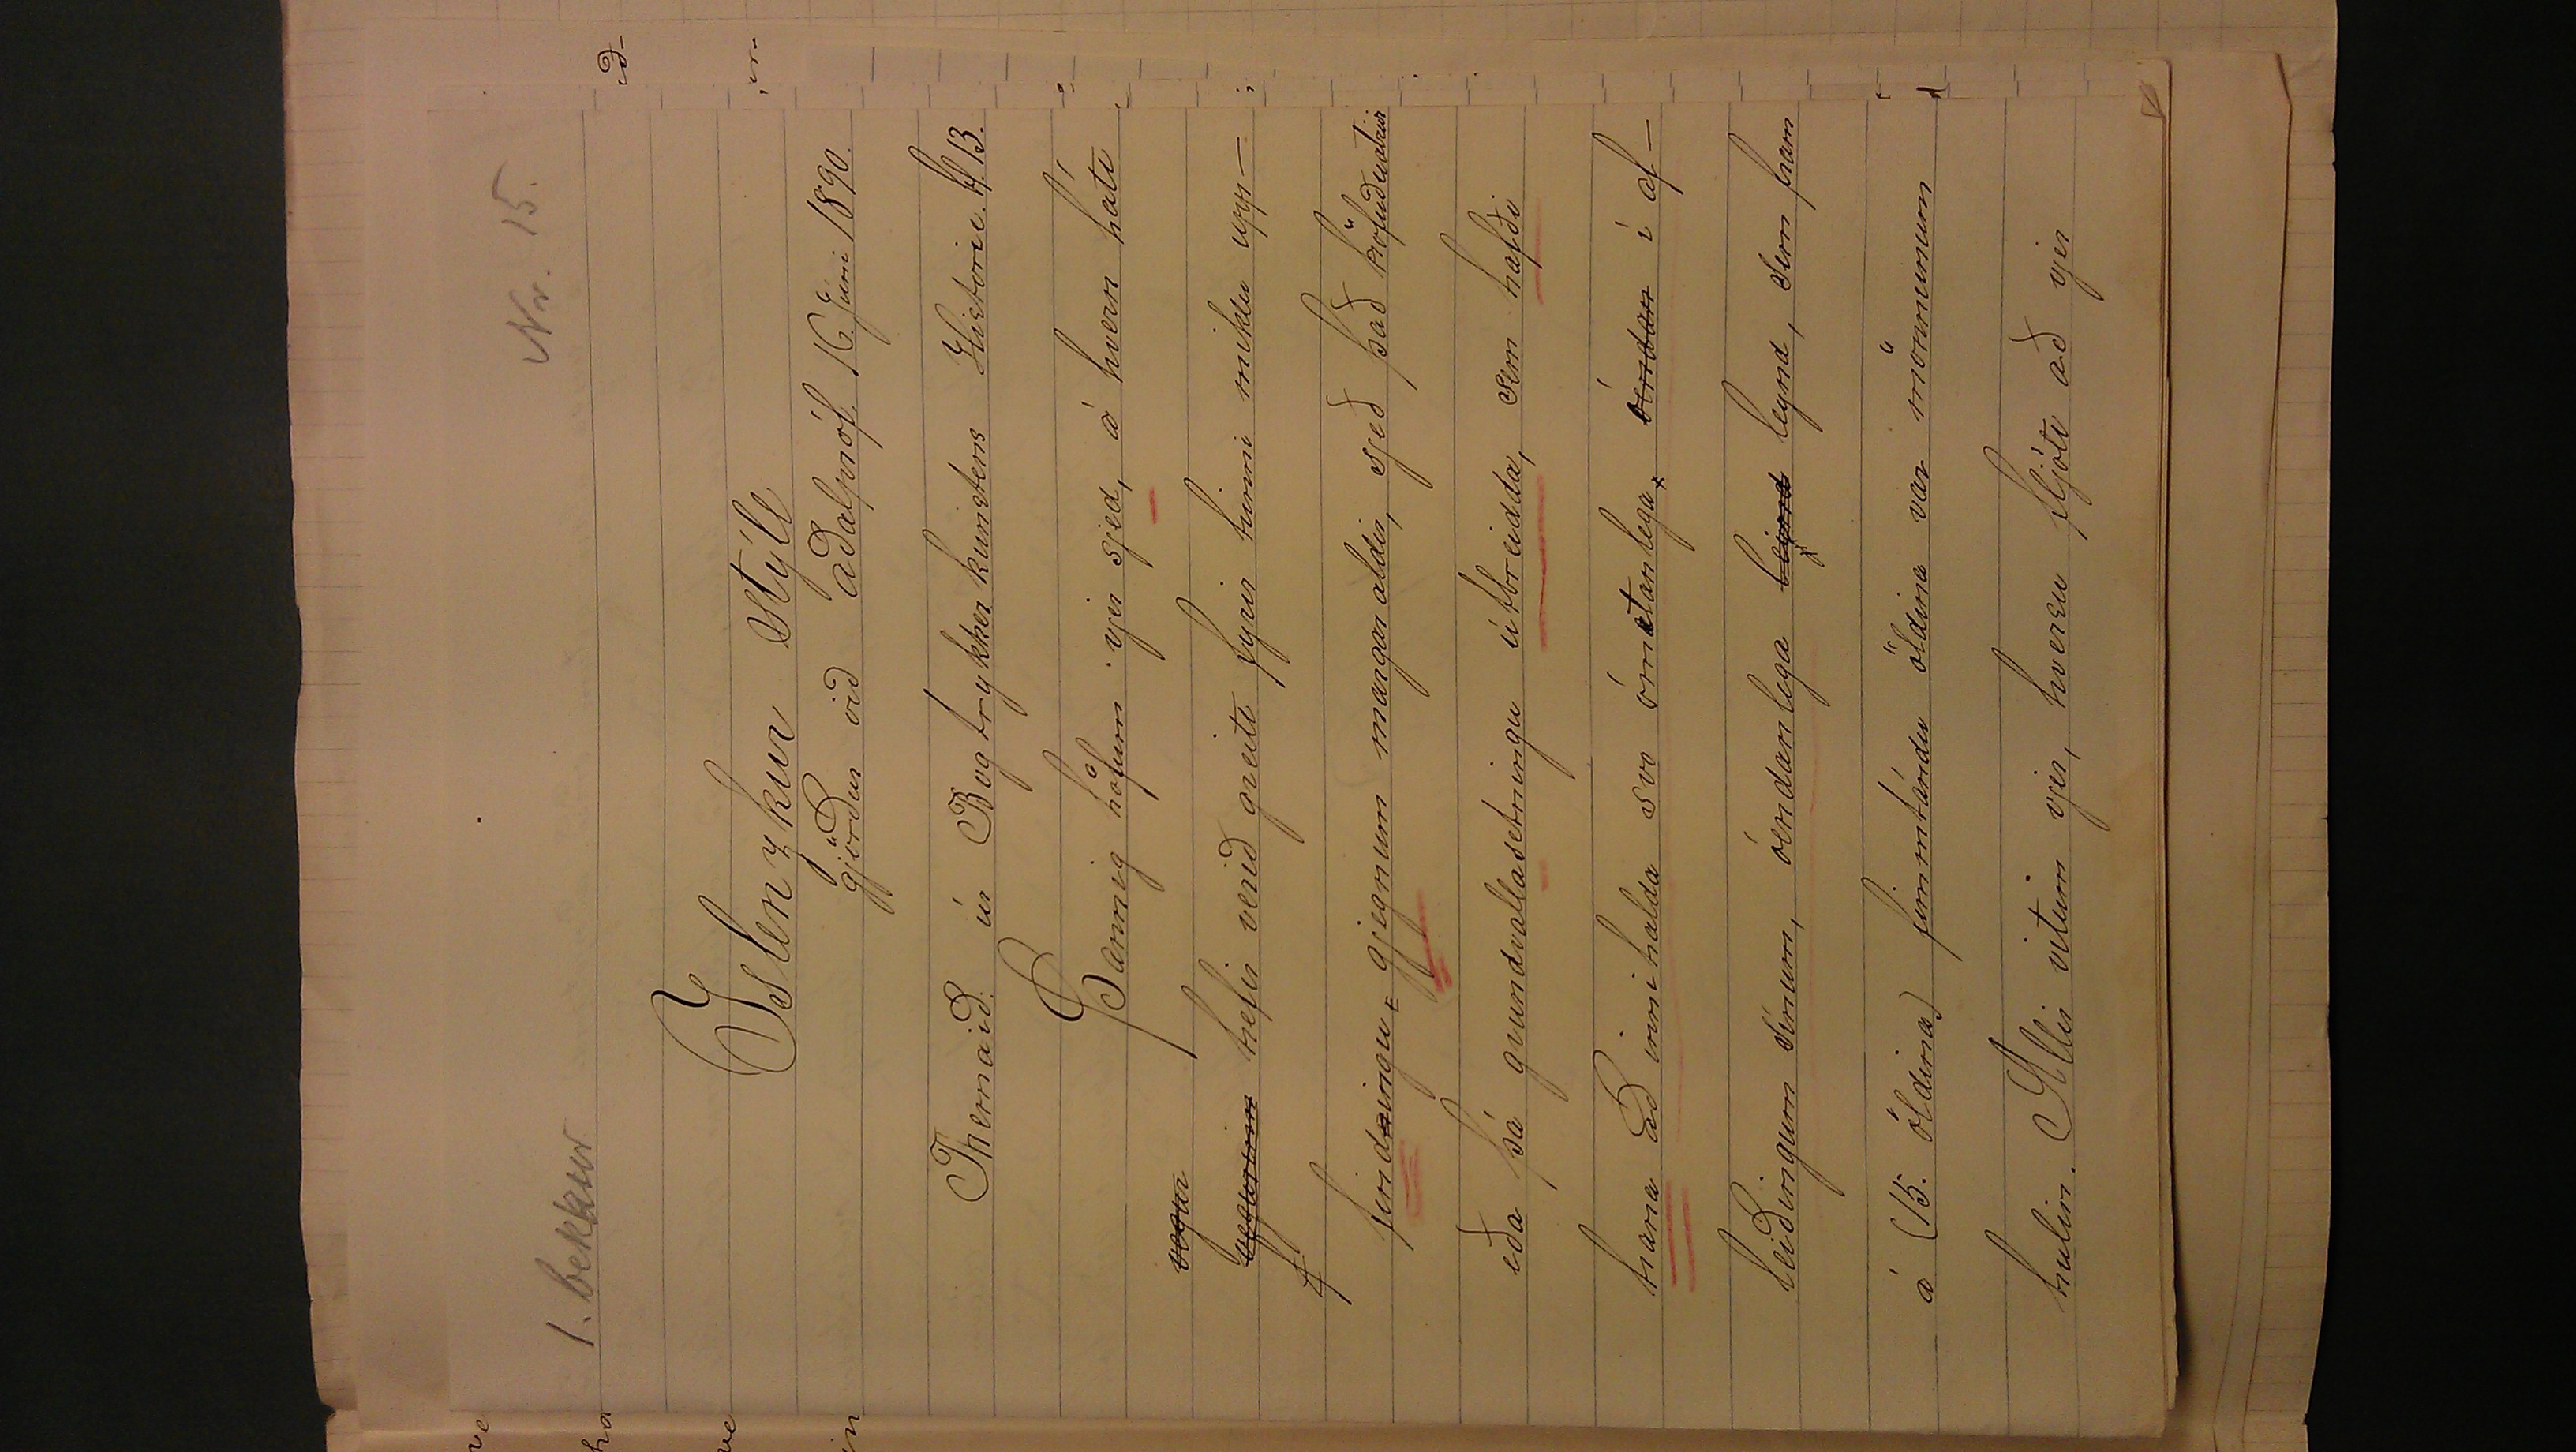 1. bekkur Nr. 15.
Íslenzkur stýll
gjörður við aðalpróf, 16. Júní 1890.
Themaið úr Bogtrykkerkunstens Historie. bl. 13.
Þannig höfum vjer sjed, á hvern hátt
vegur
vegurinn hefir verið greitt fyrir hinni miklu upp-
findningu, gjegnum margar aldir, sjeð það höfuðatriði
eða þá grundvallasetningu útbreidda, sem hafði
hana að innihalda svo ómetanlega, óendan í af-
leiðingum sínum, óendanlega leynd, sem fram
á (15. öldina) fimmtándu öldina var mönnunum
hulin. Allir vitum vjer, hversu fljótt að vjer